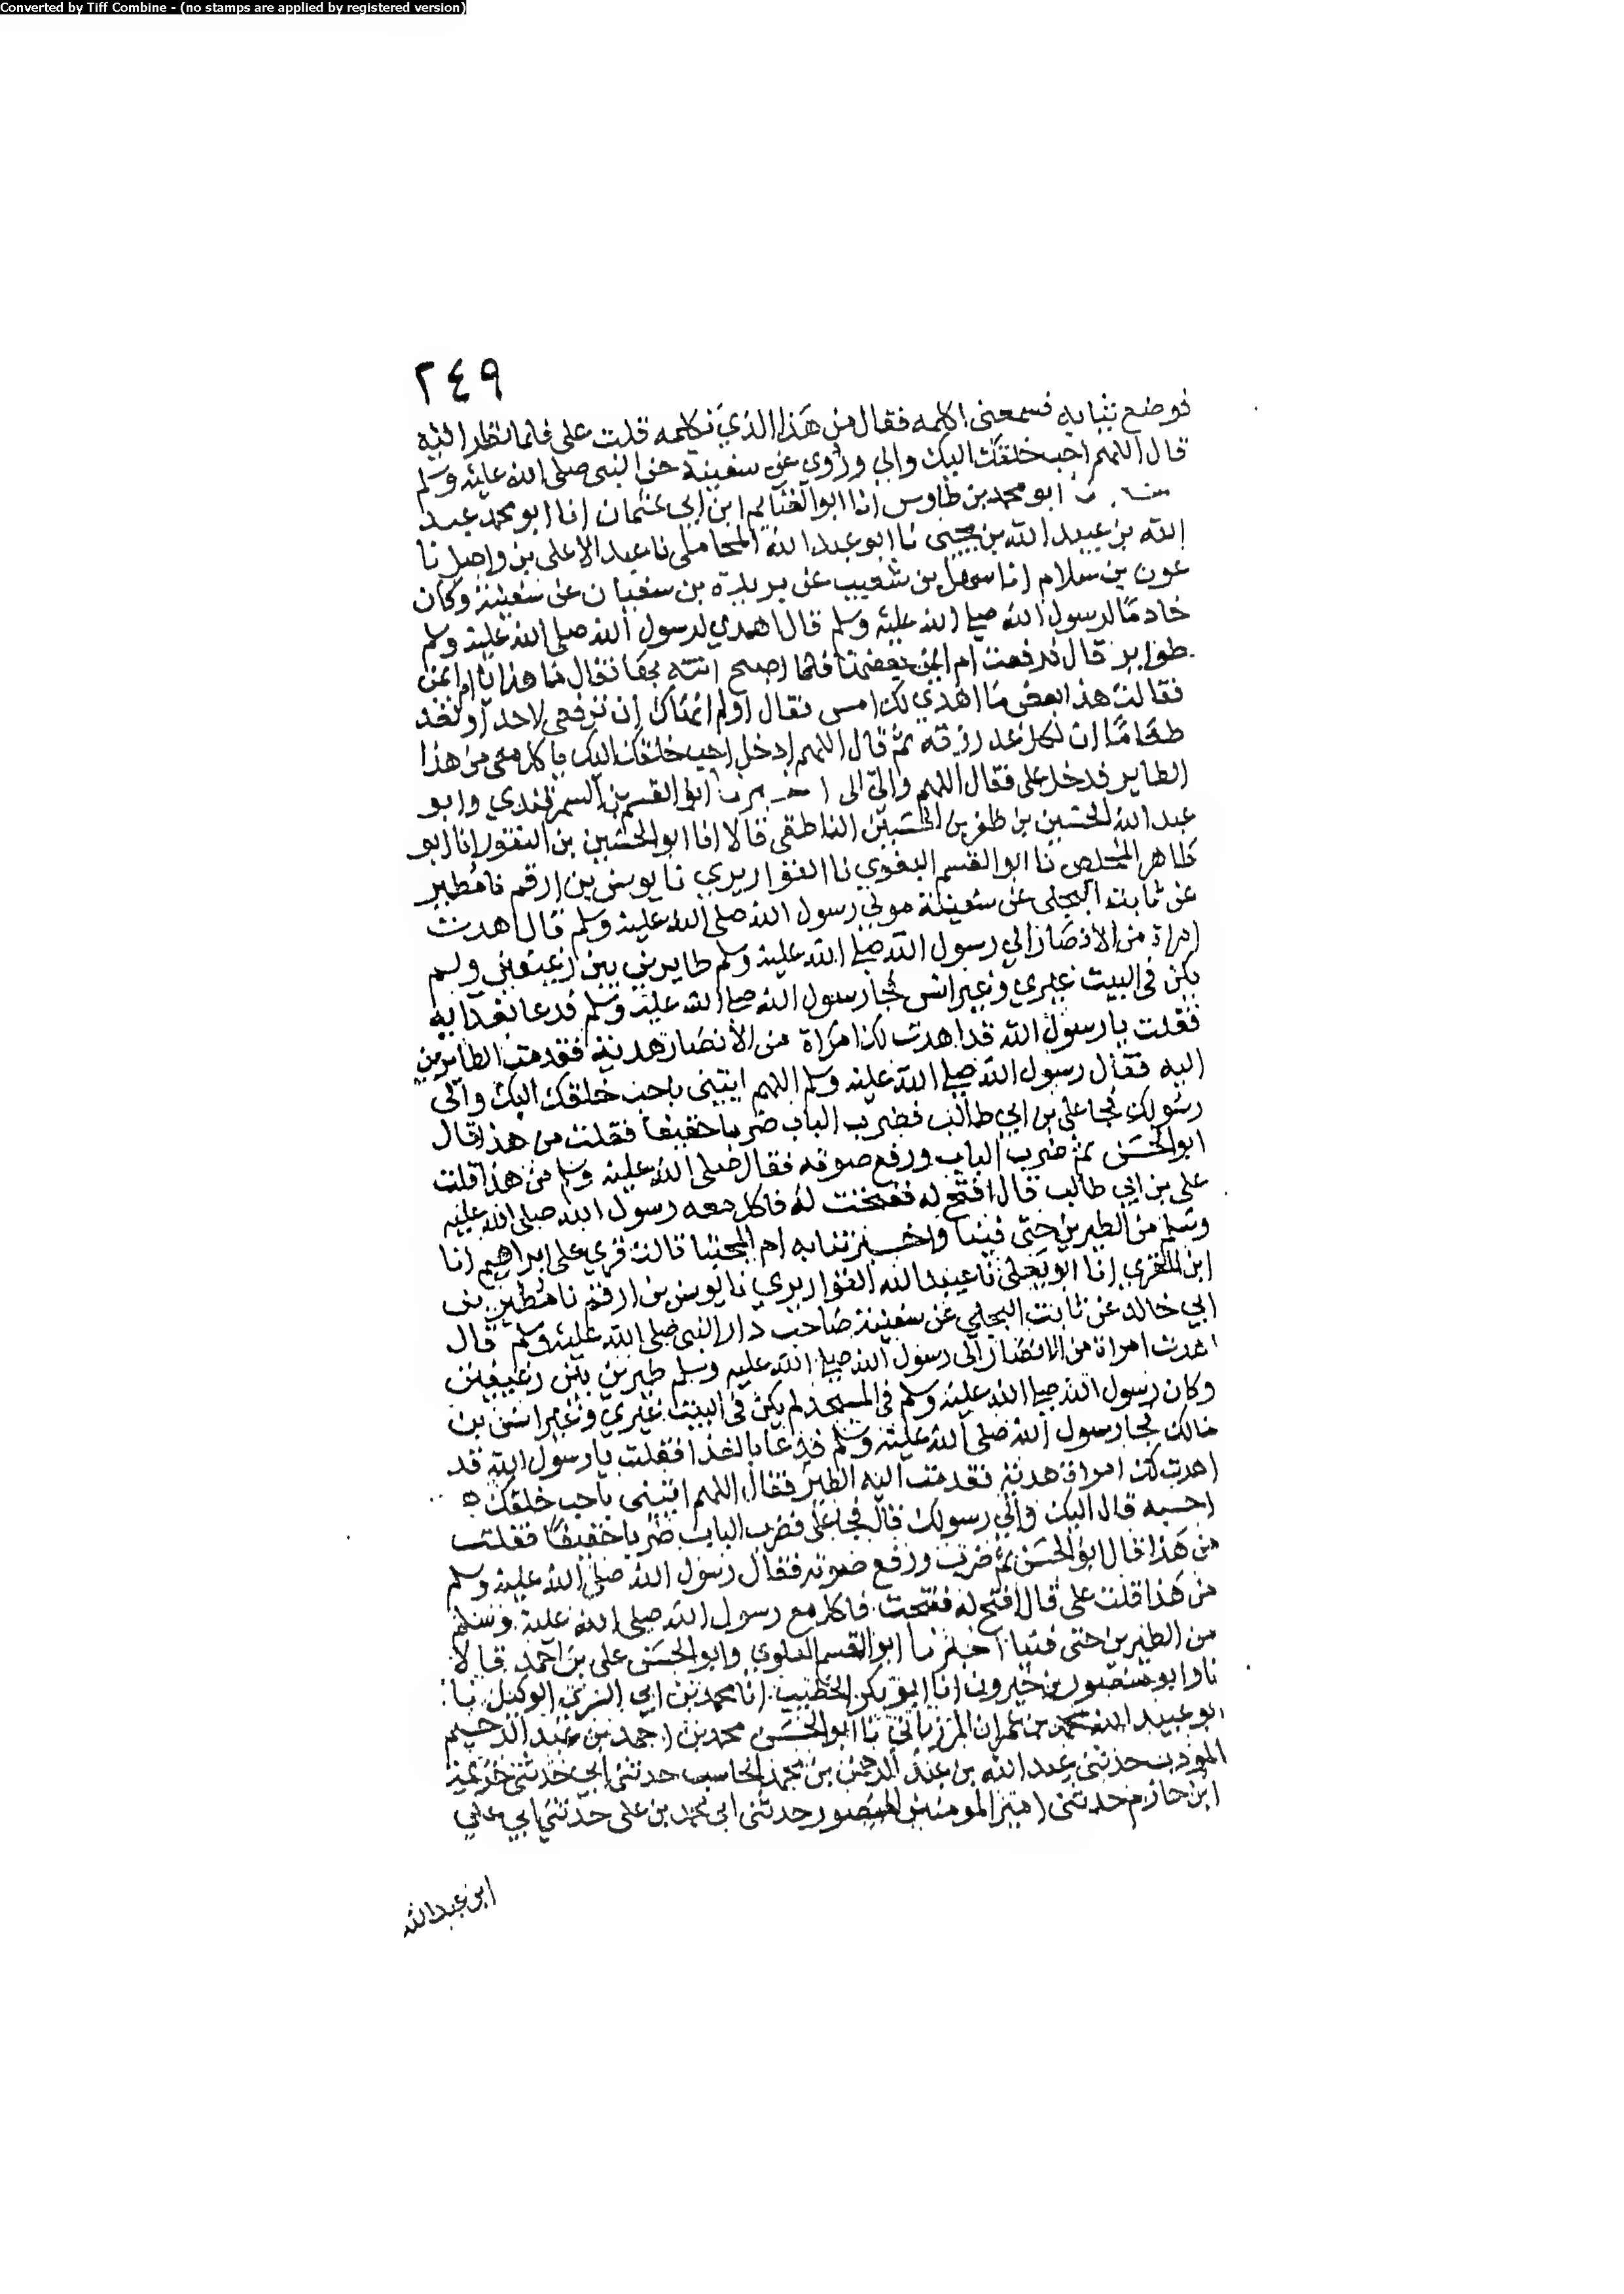 Converted by Tiff Combine - (no stamps are applied by registered version)
٢٤٩
فوضع ثيابه فسمعنى اكلمه فقال من هذا الذي تكلمه قلت على فلما نظر اليه
قال اللهم احب خلقك اليك والي وروي عن سفينة عن النبى صلى الله عليه وسلم
ابو محمد بن طاوس انا ابو الغنايم ابن ابي عثمان انا ابو محمد عبد
الله بن عبيد الله بن يحيى نا ابو عبد الله المحاملى نا عبد الاعلى بن واصل نا
عون بن سلام انا سهل بن شعيب عن بريدة بن سفيان عن سفينة وكان
خادما لرسول الله صلى الله عليه وسلم قال اهدي لرسول الله صلى الله عليه وسلم
طواير قال فرفعت ام ايمن بعضها فلما اصبح اتته بها فقال ما هذا يا ام ايمن
فقالت هذا بعض ما اهدي لك امس فقال اولم انهاك ان ترفعى لاحد او لغد
طعاما ان لكل غد رزقه ثم قال اللهم ادخل احب خلقك اليك ياكل معى من هذا
الطاير فدخل على فقال اللهم والي الى اخبرنا ابو القسم بن السمرقندي وابو
عبد الله الحسين بن ظفر بن الحسين الناطقى قالا انا ابو الحسين بن النقور انا ابو
طاهر المخلص نا ابو القسم البغوي نا القواريري نا يونس بن ارقم نا مطير
عن ثابت البجلى عن سفينة مولى رسول الله صلى الله عليه وسلم قال اهدت
امراة من الانصار الي رسول الله صلى الله عليه وسلم طايرين بين رغيفين ولم
يكن فى البيت غيري وغير انس فجا رسول الله صلى الله عليه وسلم فدعا بغدايه
فقلت يا رسول الله قد اهدت لك امراة من الانصار هدية فقدمت الطايرين
اليه فقال رسول الله صلى الله عليه وسلم اللهم ايتينى باحب خلقك اليك والى
رسولك فجا على بن ابي طالب فضرب الباب ضربا خفيفا فقلت من هذا قال
ابو الحسن ثم ضرب الباب ورفع صوته فقال صلى الله عليه وسلم من هذا قلت
على بن ابي طالب قال افتح له ففتحت له فاكل معه رسول الله صلى الله عليه
وسلم من الطيرين حتى فنيا واخبرتنا به ام المجتبا قالت قري على ابراهيم انا
ابن المقري انا ابو يعلى نا عبيد الله القواريري نا يونس بن ارقم نا مطير بن
ابي خالد عن ثابت البجلي عن سفينة صاحب دار النبى صلى الله عليه وسلم قال
اهدت امراة من الانصار الى رسول الله صلى الله عليه وسلم طيرين بين رغيفين
وكان رسول الله صلى الله عليه وسلم فى المسجد لم يكن فى البيت غيري وغير انس بن
مالك فجا رسول الله صلى الله عليه وسلم فدعا بالغدا فقلت يا رسول الله قد
اهدت لك امراة هدية فقدمت اليه الطير فقال اللهم ائتينى باحب خلقك
احسبه قال اليك والي رسولك قال فجا على فضرب الباب ضربا خفيفا فقلت
من هذا قال ابو الحسن ثم ضرب ورفع صوته فقال رسول الله صلى الله عليه وسلم
من هذا قلت على قال افتح له ففتحت فاكل مع رسول الله صلى الله عليه وسلم
من الطيرين حتى فنيا اخبرنا ابو القسم العلوي وابو الحسن على بن احمد قالا
نا وابو منصور بن خيرون انا ابو بكر الخطيب انا محمد بن ابي السري الوكيل نا
ابو عبيد الله محمد بن عمران المرزباني نا ابو الحسن محمد بن احمد بن عبد الرحيم
المودب حدثنى عبد الله بن عبد الرحمن بن محمد الحاسب حدثنى ابي حدثنى خزيمة
ابن حازم حدثنى امير المومنين المنصور حدثنى ابي محمد بن على حدثني ابي على
ابن عبد الله